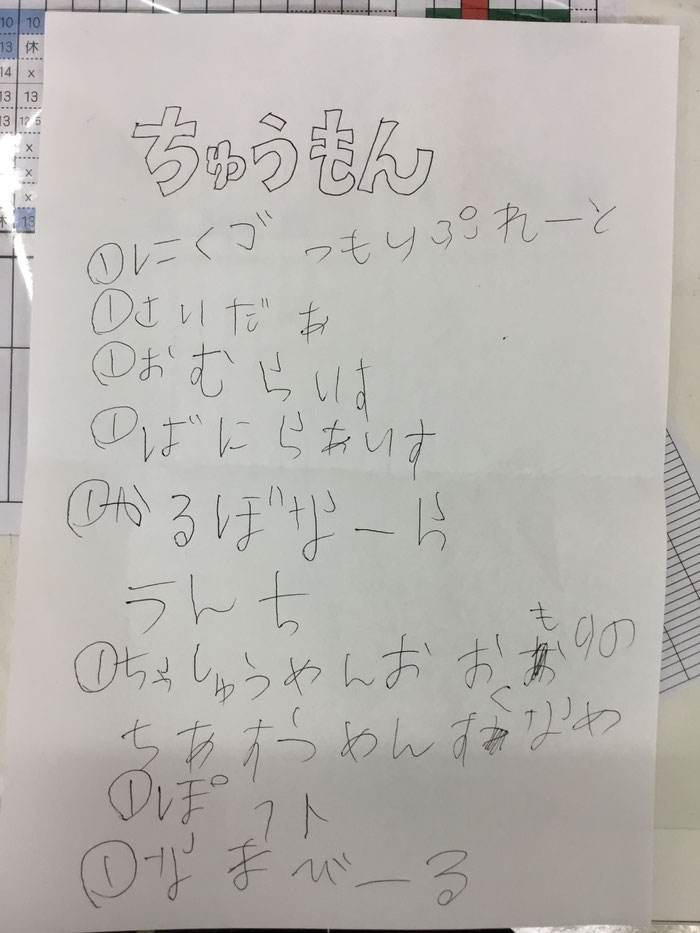 10 10
13 休
14 x
13 13
13 12.5
x
x
x
休 15
ちゅうもん
①にくごっもりぷれーと
①さいだぁ
①おむらいす
①ばにらあいす
①かるぼなーら
うんち
①ちゃしゅうめんお おもりの
ちあすうめんすくなめ
①ぽ フト
①なまびーる